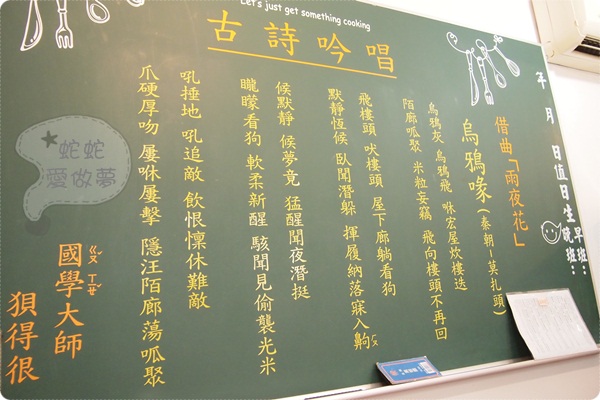 Let's just get something cooking
古詩吟唱
年 月 日 值日生 早班： 晚班：
借曲「雨夜花」
烏鴉喙（秦朝－莫扎頭）
烏鴉灰 烏鴉飛 咻宏屋炊樓迭
陌廊呱聚 米粒妄竊 飛向樓頭不再回
飛樓頭 吠樓頭 屋下廊躺看狗
默靜恆候 臥聞潛躲 揮履納落寐入齁ㄍㄡ
候默靜 候夢竟 猛醒聞夜潛挺
矓矇看狗 軟柔新醒 駭聞見偷襲光米
吼捶地 吼追敵 飲恨懍休難敵
爪硬厚吻 屢咻屢擊 隱汪陌廊蕩呱聚
國學大師
ㄍㄡ ㄒㄧㄝ
狽得很
蛇蛇
愛做夢